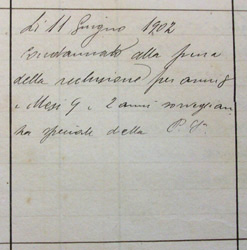 Li 11 Giugno 1902
Condannato alla pena
della reclusione per anni 8
e Mesi 9 e 2 anni sorveglian
za speciale della P. S.